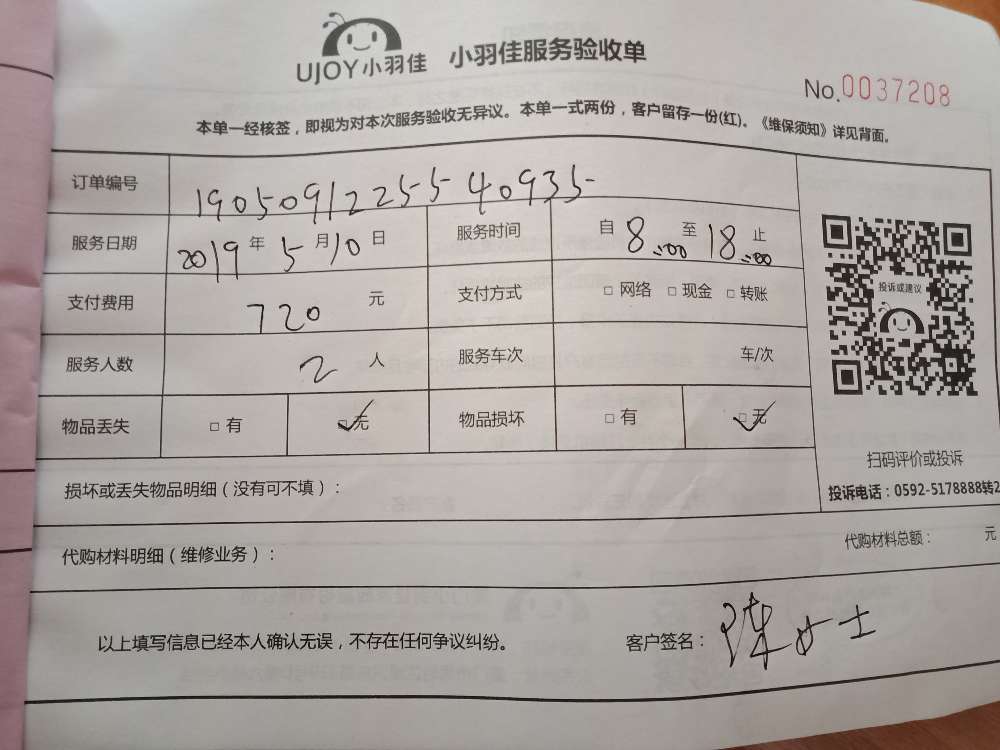 UJOY小羽佳 小羽佳服务验收单
No.0037208
本单一经核签，即视为对本次服务验收无异议。本单一式两份，客户留存一份(红)。《维保须知》详见背面。
订单编号 190509122554 0935
服务日期 2019年5月10日 服务时间 自8:00至18:00止
支付费用 720元 支付方式 □网络 □现金 □转账
服务人数 2人 服务车次 车/次
物品丢失 □有 ☑无 物品损坏 □有 ☑无
投诉或建议
扫码评价或投诉
投诉电话：0592-5178888转2
损坏或丢失物品明细（没有可不填）：
代购材料明细（维修业务）： 代购材料总额： 元
以上填写信息已经本人确认无误，不存在任何争议纠纷。 客户签名：陈女士